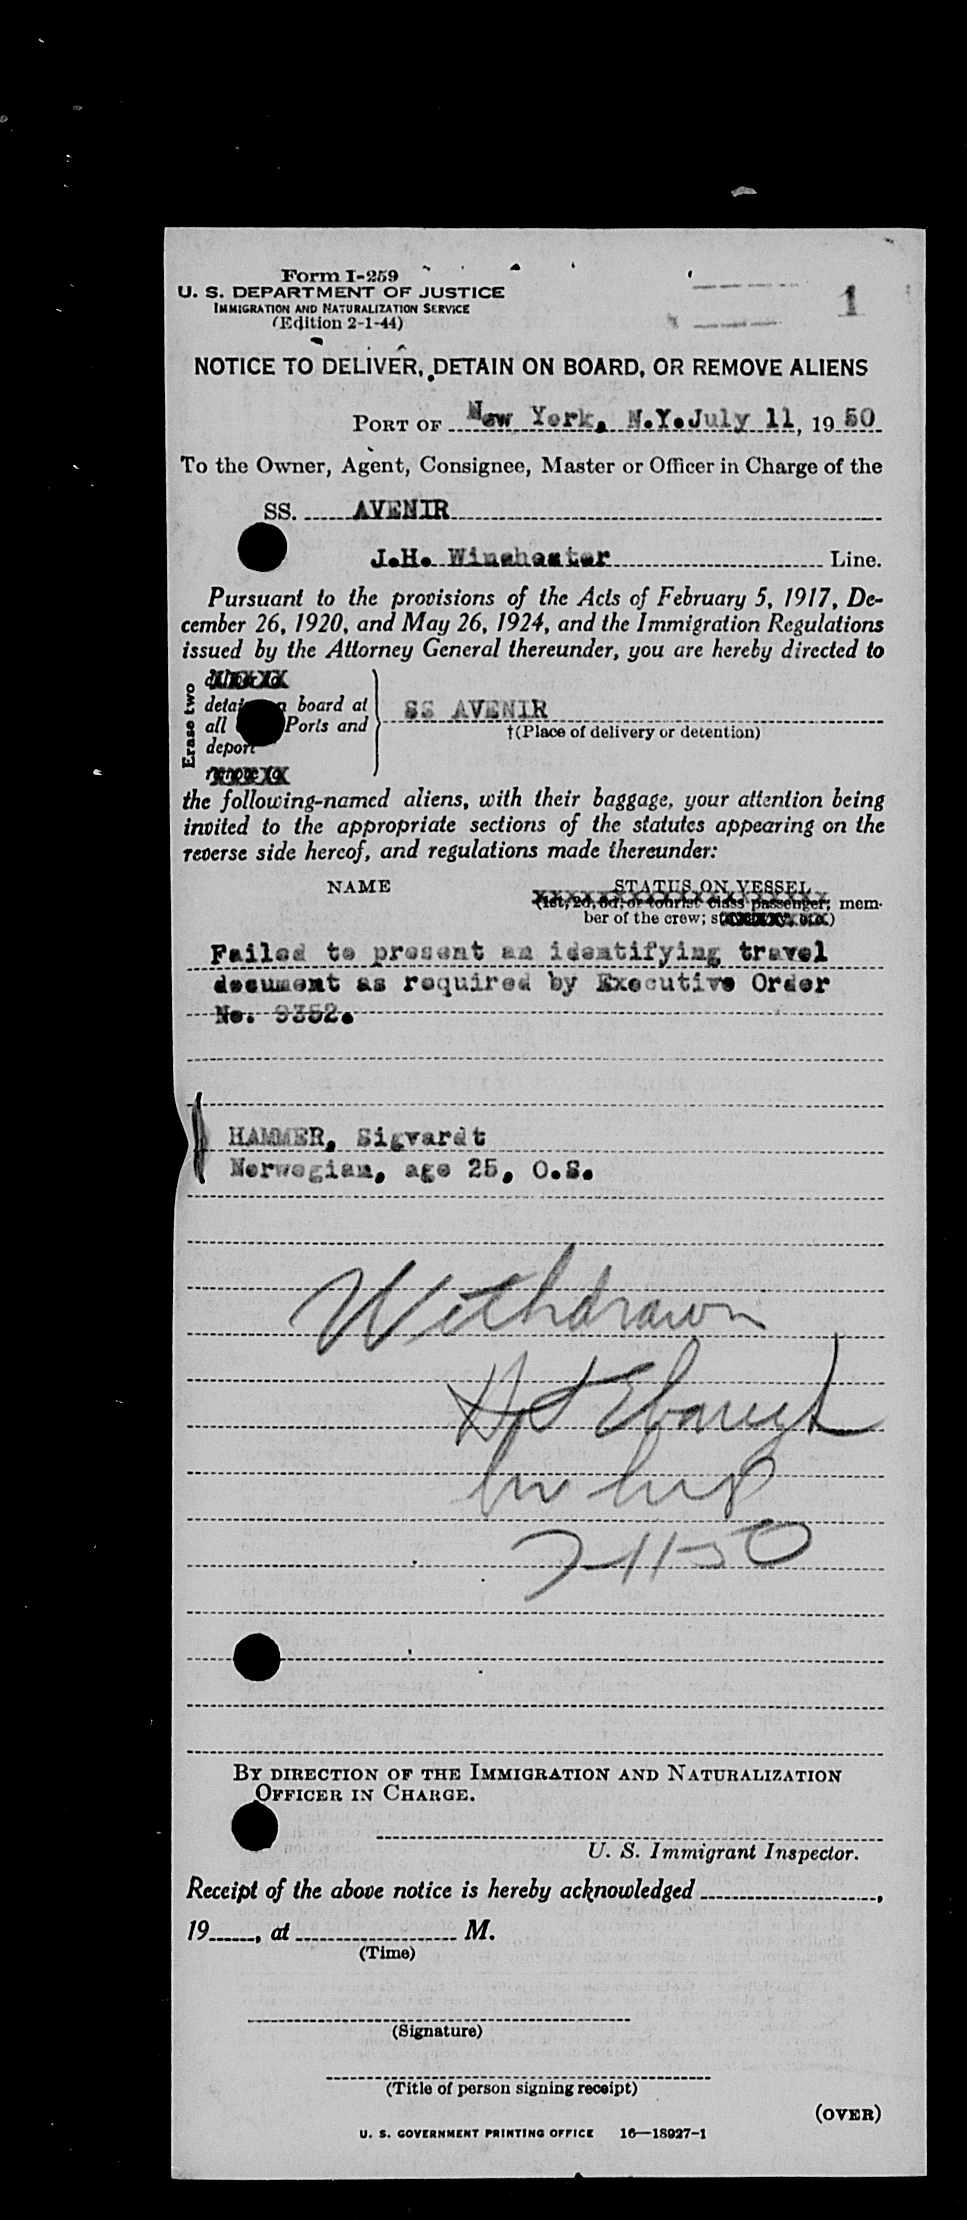 Form I-259
U. S. DEPARTMENT OF JUSTICE
IMMIGRATION AND NATURALIZATION SERVICE
(Edition 2-1-44)
1
NOTICE TO DELIVER, DETAIN ON BOARD, OR REMOVE ALIENS
PORT OF New York, N.Y. July 11, 1950
To the Owner, Agent, Consignee, Master or Officer in Charge of the
SS. AVENIR
J.H. Winchester Line.
Pursuant to the provisions of the Acts of February 5, 1917, De-
cember 26, 1920, and May 26, 1924, and the Immigration Regulations
issued by the Attorney General thereunder, you are hereby directed to
Erase two
board at
all Ports and
deport
SS AVENIR
†(Place of delivery or detention)
the following-named aliens, with their baggage, your attention being
invited to the appropriate sections of the statutes appearing on the
reverse side hereof, and regulations made thereunder:
NAME STATUS ON VESSEL
(1st, 2d, 3d, or tourist class passenger; mem-
ber of the crew;
Failed to present an identifying travel
document as required by Executive Order
No. 9352.
HAMMER, Sigvardt
Norwegian, age 25, O.S.
Withdrawn
Imm Insp
7-11-50
BY DIRECTION OF THE IMMIGRATION AND NATURALIZATION
OFFICER IN CHARGE.
U. S. Immigrant Inspector.
Receipt of the above notice is hereby acknowledged ,
19 , at M.
(Time)
(Signature)
(Title of person signing receipt)
(OVER)
U. S. GOVERNMENT PRINTING OFFICE 16—18927-1